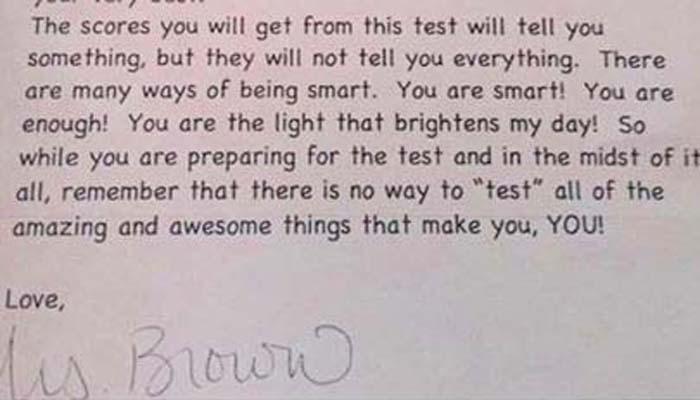 The scores you will get from this test will tell you
something, but they will not tell you everything. There
are many ways of being smart. You are smart! You are
enough! You are the light that brightens my day! So
while you are preparing for the test and in the midst of it
all, remember that there is no way to "test" all of the
amazing and awesome things that make you, YOU!
Love,
Brown